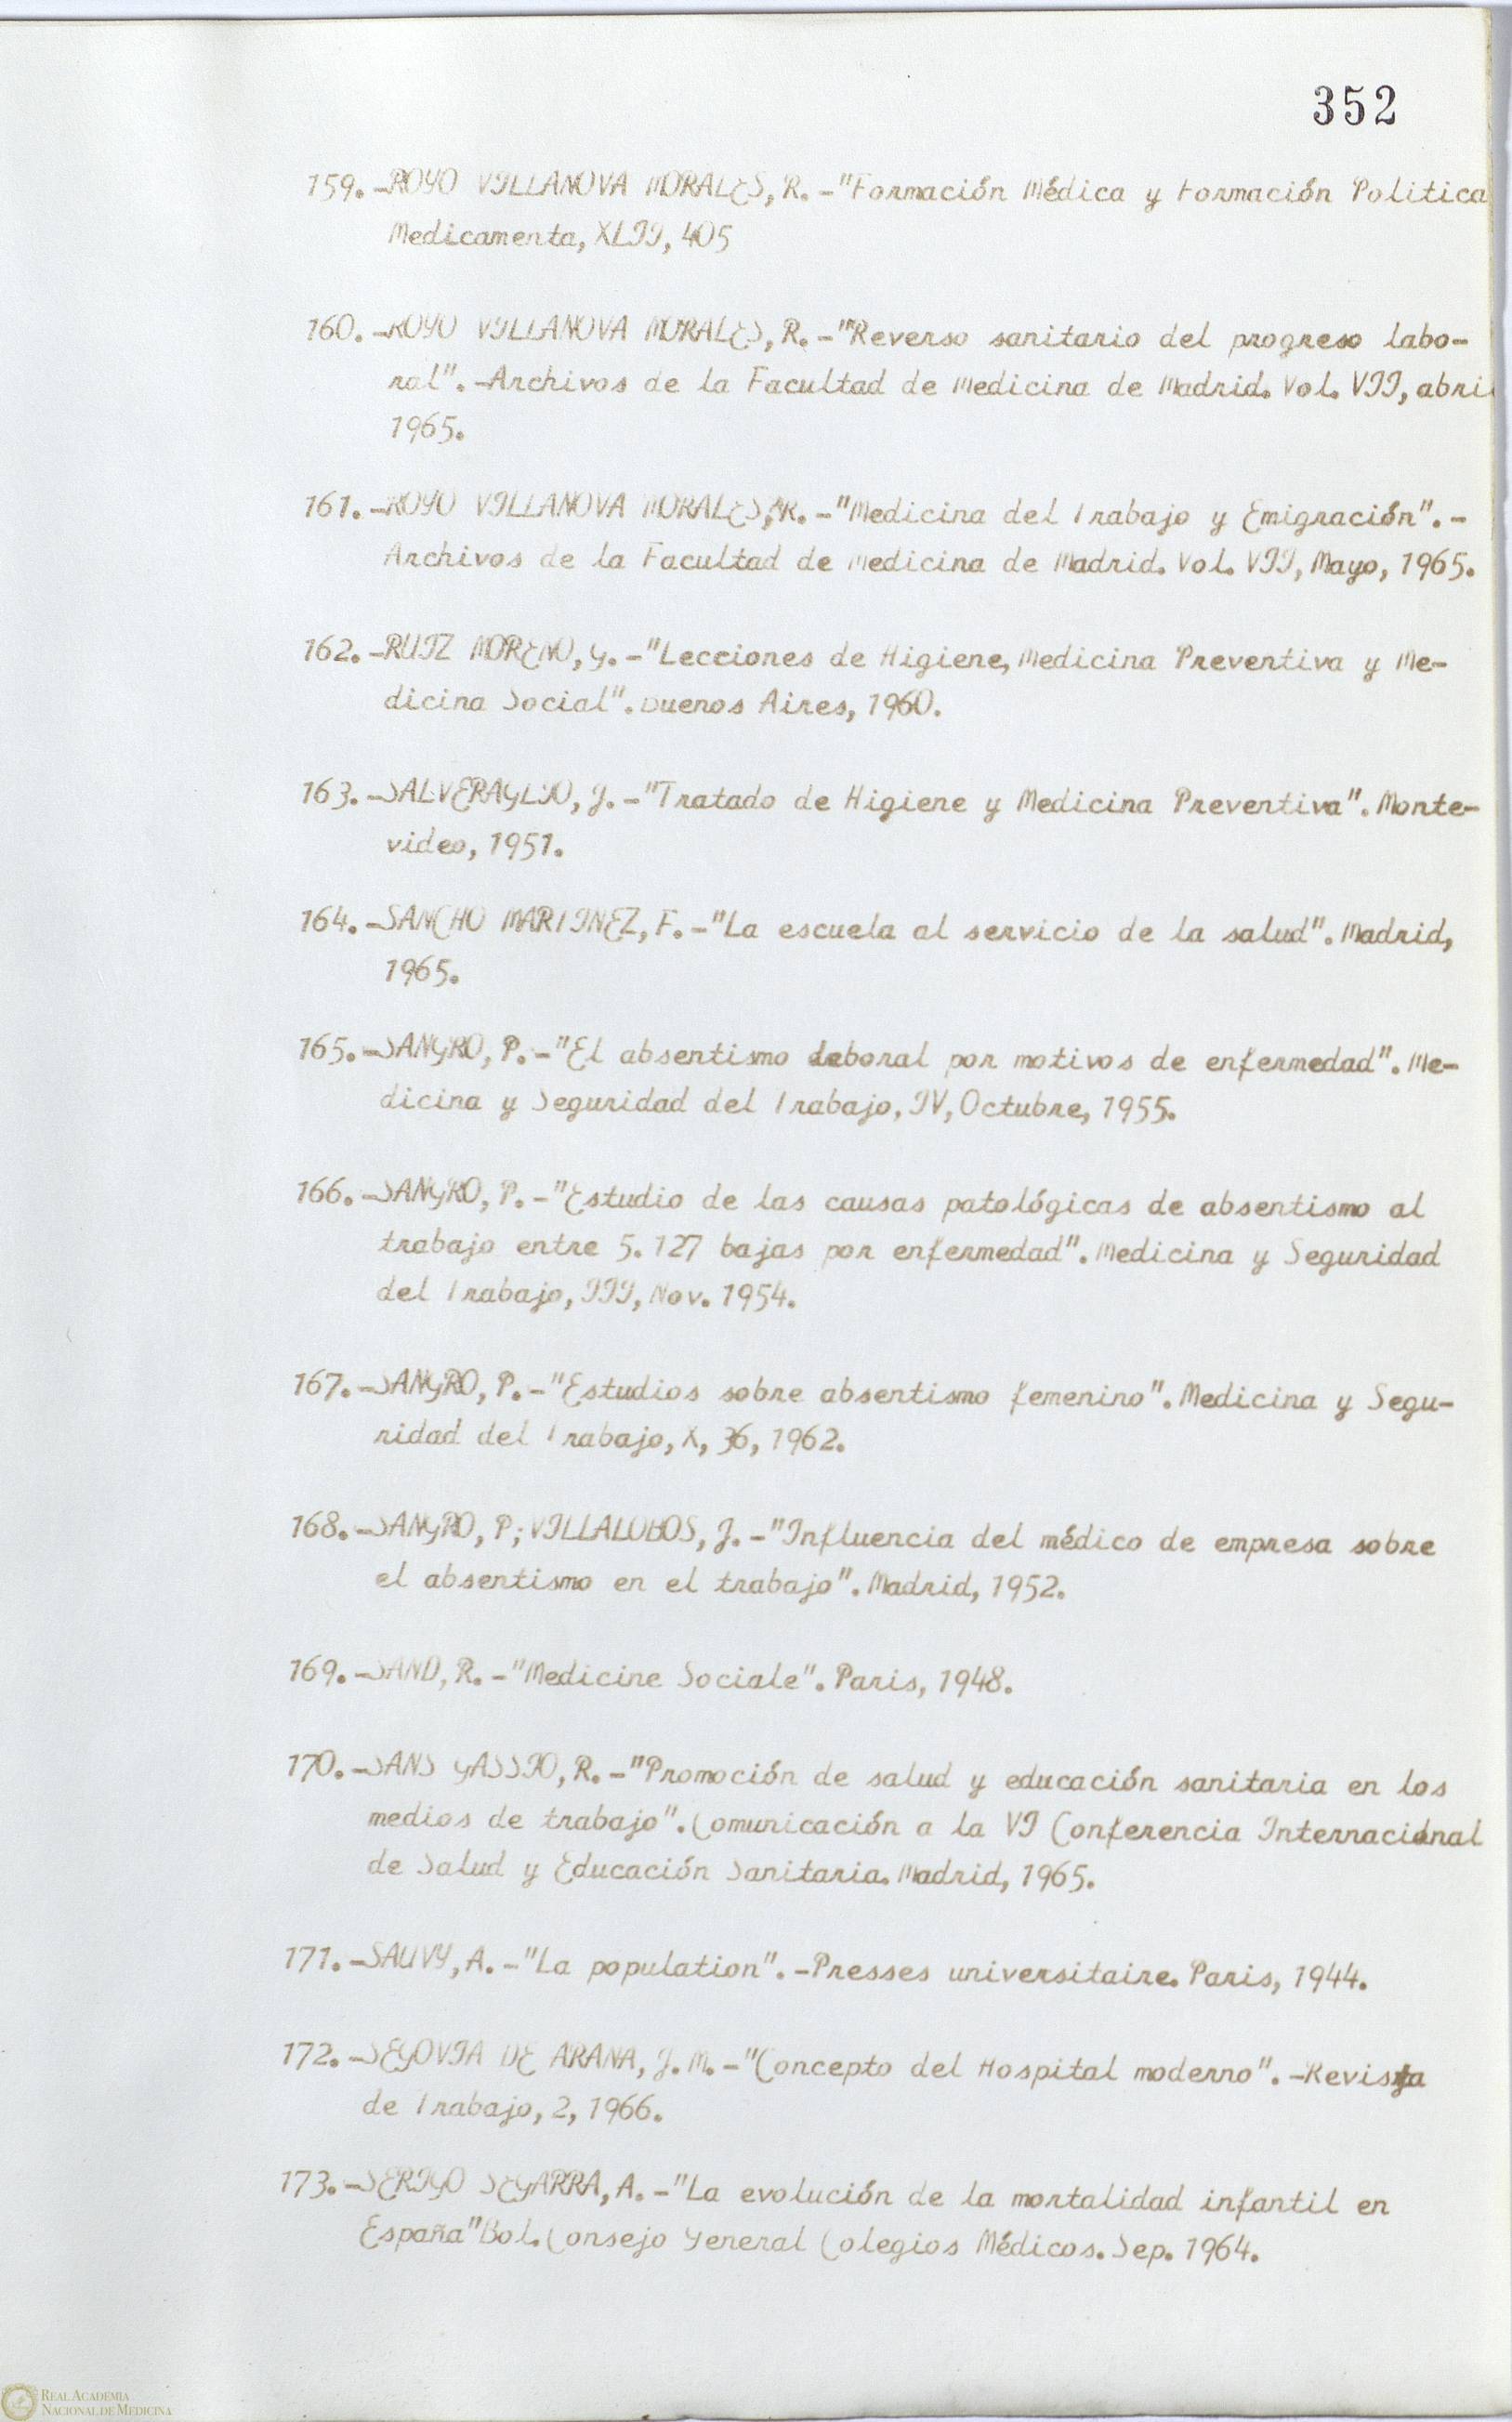 352
159.-ROYO VILLANOVA MORALES, R.-"Formación Médica y Formación Politica
Medicamenta, XLII, 405
160.-ROYO VILLANOVA MORALES, R.-"Reverso sanitario del progreso labo-
ral".-Archivos de la Facultad de Medicina de Madrid. Vol. VII, abril
1965.
161.-ROYO VILLANOVA MORALES, R.-"Medicina del Trabajo y Emigración".-
Archivos de la Facultad de Medicina de Madrid. Vol. VII, Mayo, 1965.
162.-RUIZ MORENO, G.-"Lecciones de Higiene, Medicina Preventiva y Me-
dicina Social". Buenos Aires, 1960.
163.-SALVERAGLIO, J.-"Tratado de Higiene y Medicina Preventiva". Monte-
video, 1951.
164.-SANCHO MARTINEZ, F.-"La escuela al servicio de la salud". Madrid,
1965.
165.-SANGRO, P.-"El absentismo laboral por motivos de enfermedad". Me-
dicina y Seguridad del Trabajo, IV, Octubre, 1955.
166.-SANGRO, P.-"Estudio de las causas patológicas de absentismo al
trabajo entre 5.127 bajas por enfermedad". Medicina y Seguridad
del Trabajo, III, Nov. 1954.
167.-SANGRO, P.-"Estudios sobre absentismo femenino". Medicina y Segu-
ridad del Trabajo, X, 36, 1962.
168.-SANGRO, P; VILLALOBOS, J.-"Influencia del médico de empresa sobre
el absentismo en el trabajo". Madrid, 1952.
169.-SAND, R.-"Medicine Sociale". Paris, 1948.
170.-SANS GASSIO, R.-"Promoción de salud y educación sanitaria en los
medios de trabajo". Comunicación a la VI Conferencia Internacional
de Salud y Educación Sanitaria. Madrid, 1965.
171.-SAUVY, A.-"La population".-Presses universitaire. Paris, 1944.
172.-SEGOVIA DE ARANA, J.M.-"Concepto del Hospital moderno".-Revista
de Trabajo, 2, 1966.
173.-SERIGO SEGARRA, A.-"La evolución de la mortalidad infantil en
España" Bol. Consejo General Colegios Médicos. Sep. 1964.
REAL ACADEMIA
NACIONAL DE MEDICINA